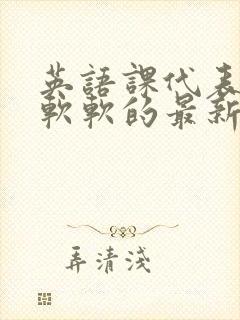 英語課代表
軟軟的最新
弄清淺